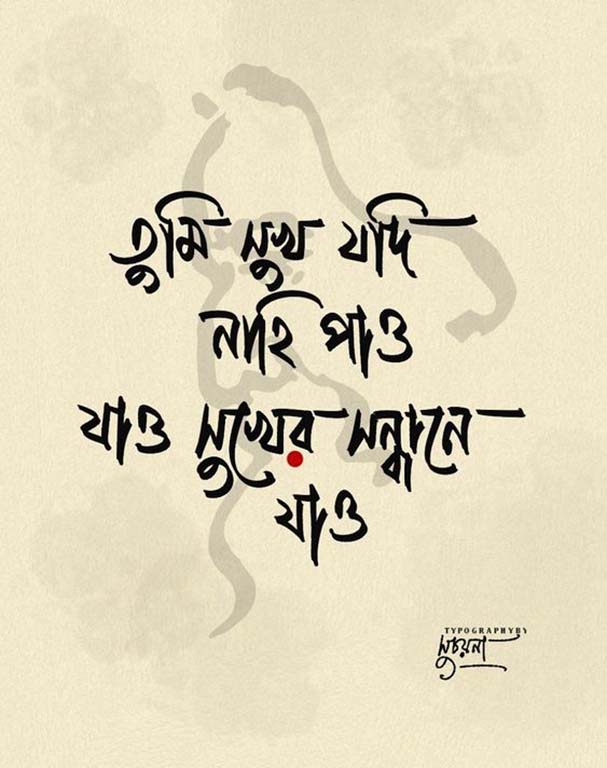 তুমি সুখ যদি
নাহি পাও
যাও সুখের সন্ধানে
যাও
TYPOGRAPHY BY
সুচয়না